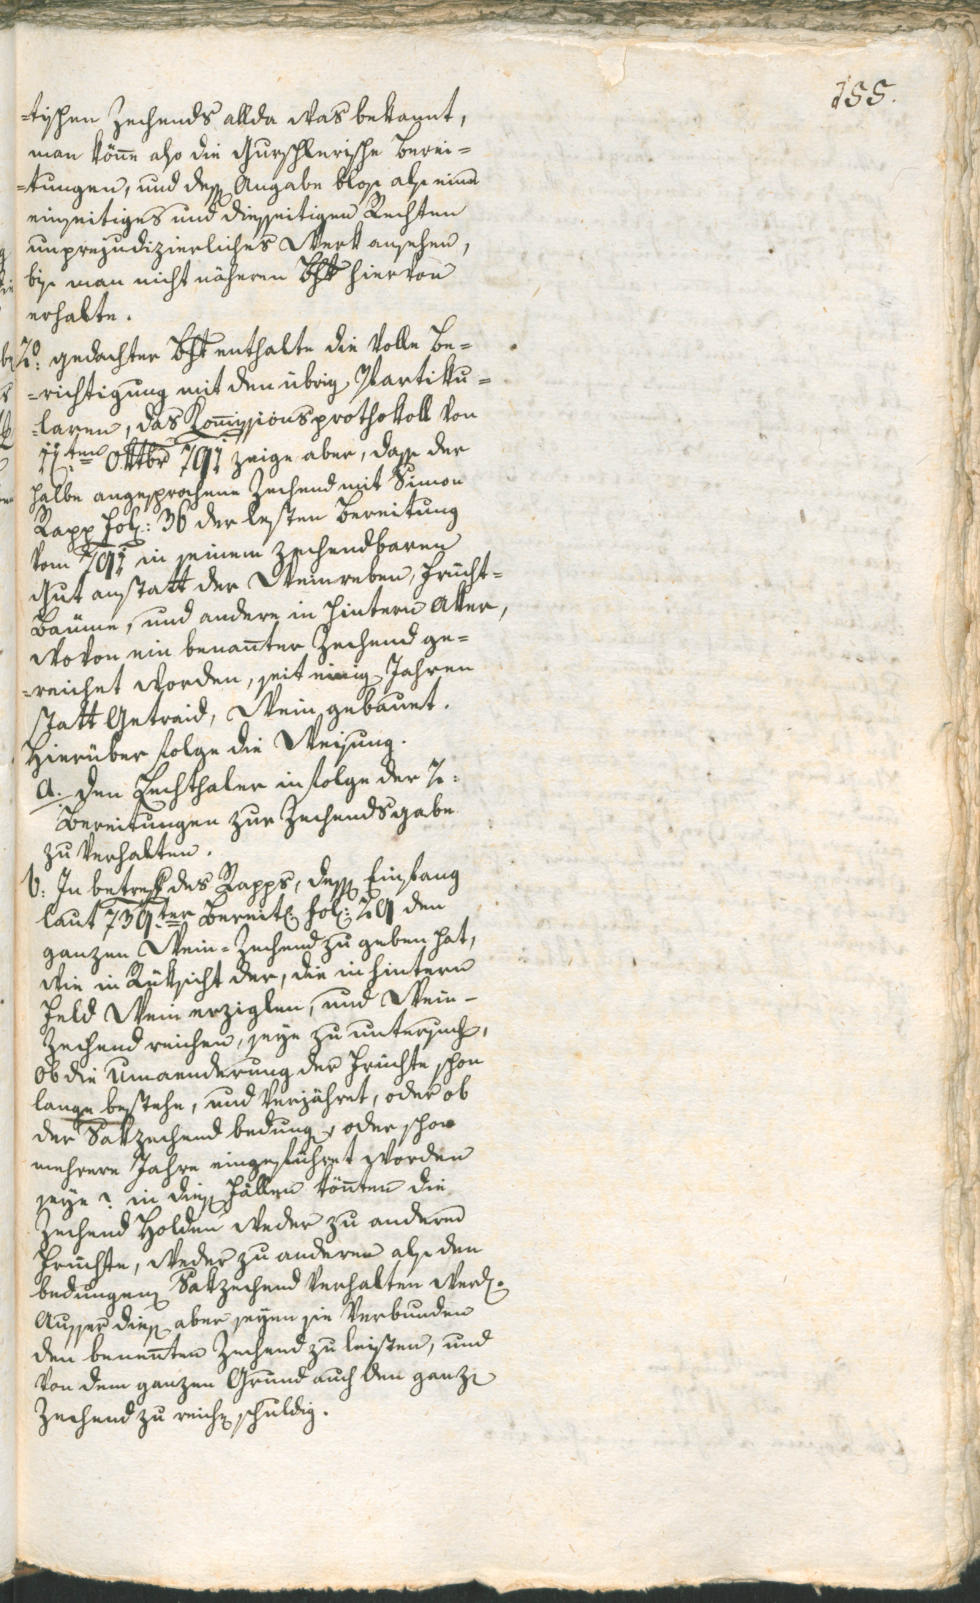 155.
-tischen Zechends allda was bekannt,
man könne also die Gurschlerische Berei=
=tungen, und dess Angabe blos als eine
einseitiges und diesseitigen Rechten
unprejudizierliches Werk ansehen,
bis man nicht näheren Bht hiervon
erhalte.
2do: gedachter Bht enthalte die volle Be=
=richtigung mit den übrig Partiku=
=laren, das Kommissionsprothokoll von
11ten Oktbr 791 zeige aber, dass der
halbe angesprochene Zechend mit Simon
Rapp fol: 36 der lesten Bereitung
vom 791 in seinem zechendbaren
Gut anstatt der Weinreben, Frücht=
Bäume, und andere in hintern Aker,
wovon ein benannter Zechend ge=
=reichet worden, seit einig Jahren
statt Getraid, Wein gebauet.
Hierüber folge die Weisung.
a. Den Lechthaler infolge der 2:
Bereitungen zur Zechendsgabe
zu verhalten.
b: In betreff des Rapps, dess Einfang
laut 739ter Bereit: fol: 29 den
ganzen Wein-Zechend zu geben hat,
wie in Rüksicht der, die in hintern
Feld Wein erziglen, und Wein-
Zechend reichen, seye zu untersuch,
ob die Umaenderung der Früchte schon
lange bestehe, und verjähret, oder ob
der Sakzechend bedung, oder schon
mehrere Jahre eingeführet worden
seye? in dies Fällen könten die
Zechend Holden weder zu anderen
Früchte, weder zu anderen als den
bedungen Sakzechend verhalten werd.
Ausser dies aber seyen sie verbunden
den benennten Zechend zu leisten, und
von dem ganzen Grund auch den ganz
Zechend zu reich schuldig.